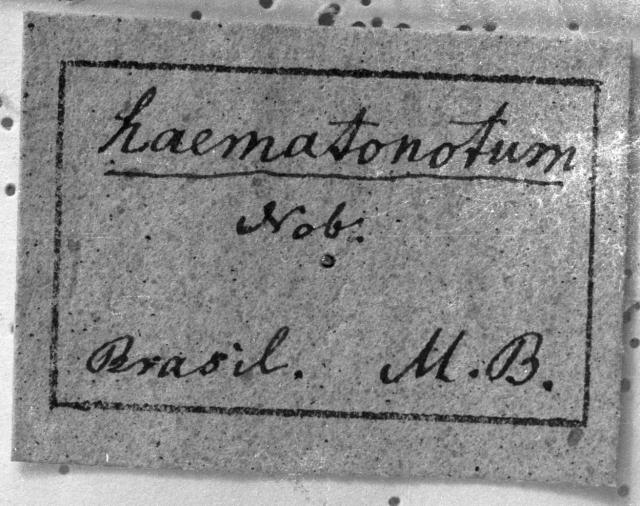 haematonotum
Nob.
Brasil. M. B.